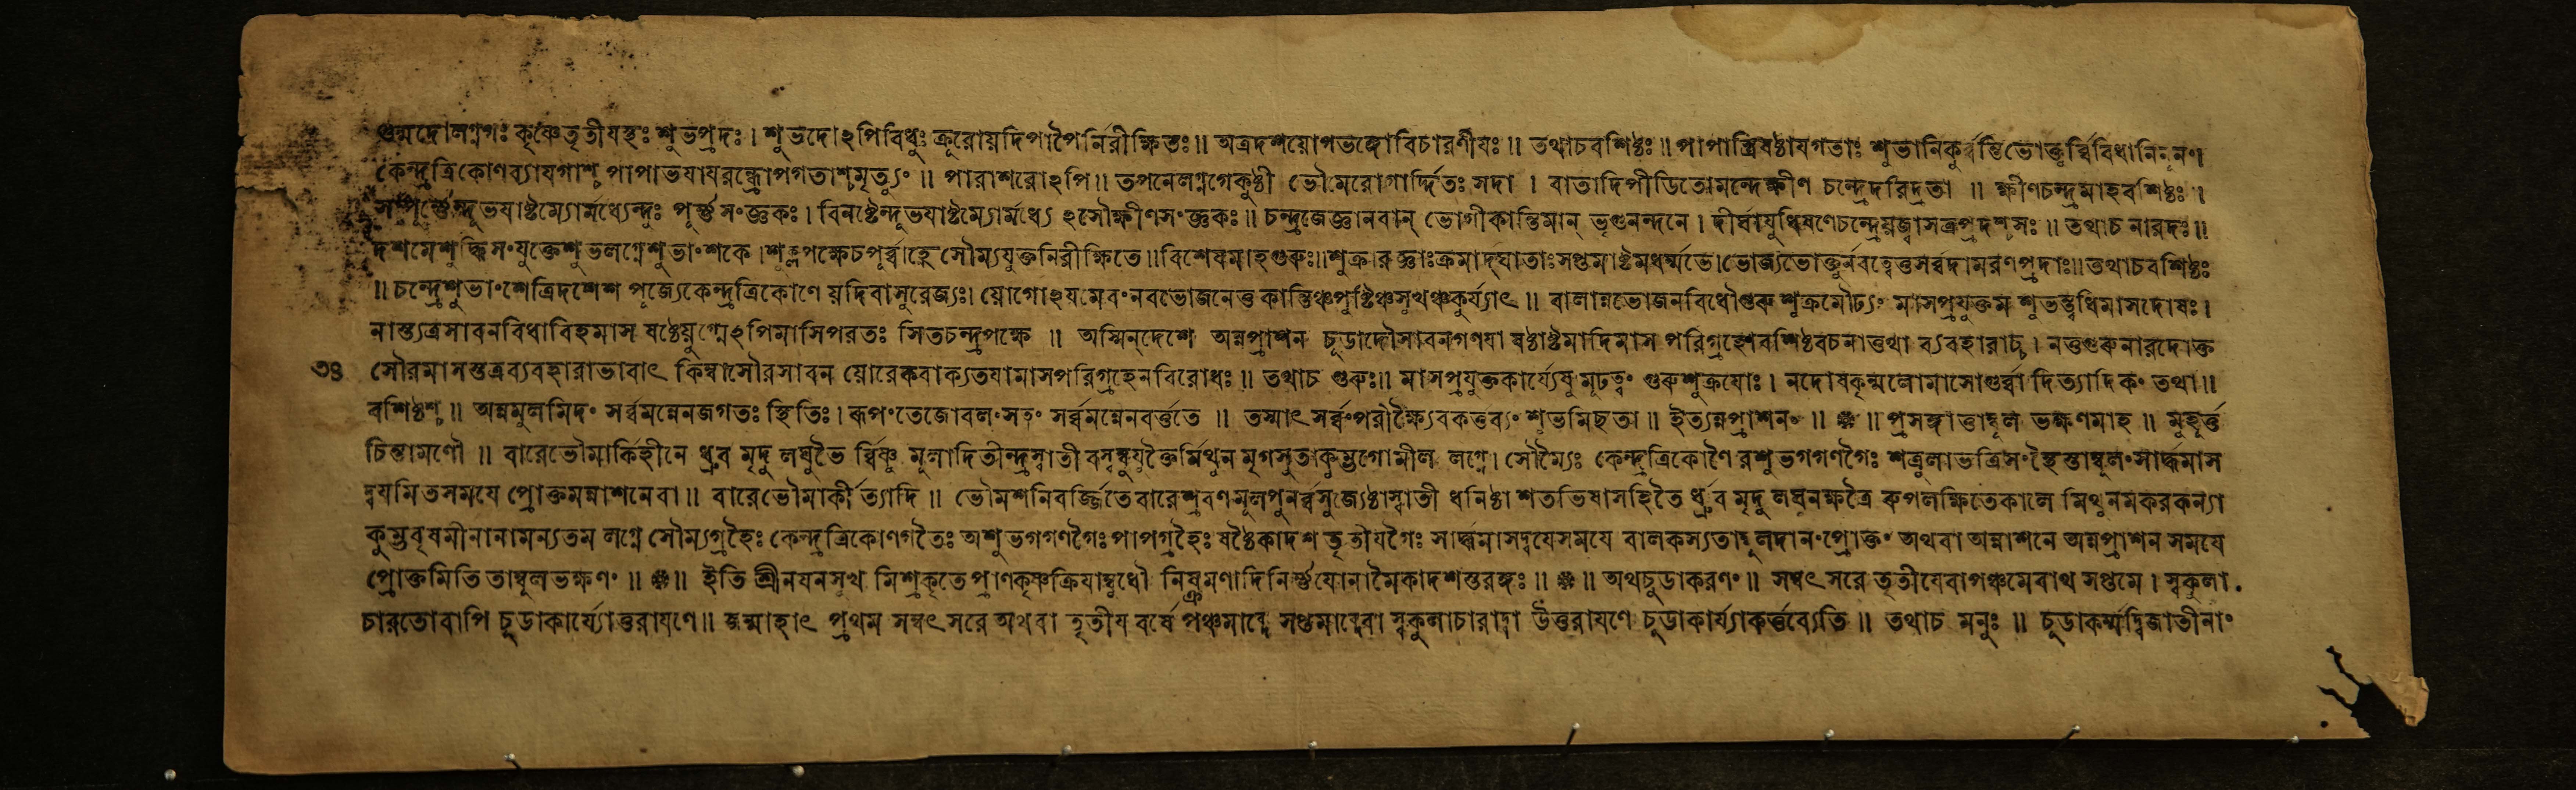 শুন্মদোলগ্নগঃ কৃষ্ণেতৃতীযস্থঃ শুভপ্রদঃ। শুভদোঽপিবিধুঃ ক্রূরোয়দিপাপৈর্নিরীক্ষিতঃ॥ অত্রদশয়োগভঙ্গোবিচারণীযঃ॥ তথাচবশিষ্ঠঃ॥ পাপাস্ত্রিষষ্ঠাযগতাঃ শুভানিকুর্ব্বন্তিভোক্তুর্ব্বিবিধানিনূনং
কেন্দ্রত্রিকোণব্যাযগাশ্চ পাপাভযাযরন্ধ্রোপগতাশ্চমৃত্যুং॥ পারাশরোঽপি॥ তপনেলগ্নগেকুষ্ঠী ভৌমেরোগার্দ্দিতঃ সদা। বাতাদিপীডিতোমন্দেক্ষীণ চন্দ্রেদরিদ্রতা॥ ক্ষীণচন্দ্রমাহবশিষ্ঠঃ।
সংপূর্ণ্ণেন্দুভযাষ্টম্যোর্মধ্যেন্দুঃ পূর্ণ্ণসংজ্ঞকঃ। বিনষ্টেন্দুভযাষ্টম্যোর্মধ্যে ঽসৌক্ষীণসংজ্ঞকঃ॥ চন্দ্রজেজ্ঞানবান্ ভোগীকান্তিমান্ ভৃগুনন্দনে। দীর্ঘাযুধিষণেচন্দ্রেয়জ্বাসত্রপ্রদশ্চসঃ॥ তথাচ নারদঃ॥
দশমেশুদ্ধিসংযুক্তেশুভলগ্নেশুভাংশকে।শুক্লপক্ষেচপূর্ব্বাহ্নেসৌম্যযুক্তনিরীক্ষিতে॥বিশেষমাহগুরুঃ॥শুক্রারজ্ঞাঃক্রমাদ্ঘাতাঃসপ্তমাষ্টমধর্ম্মভে।ভোজ্যভোক্তুর্নবত্বেত্তুসর্ব্বদামরণপ্রদাঃ॥তথাচবশিষ্ঠঃ
॥ চন্দ্রেশুভাংশেত্রিদশেশ পূজ্যেকেন্দ্রত্রিকোণে য়দিবাসুরেজ্যঃ। য়োগোঽযমেবংনবভোজনেত্তু কান্তিঞ্চপুষ্টিঞ্চসুখঞ্চকুর্য্যাৎ॥ বালান্নভোজনবিধৌগুরুশুক্রমৌঢ্যং মাসপ্রযুক্তম শুভন্ত্বধিমাসদোষঃ।
নাস্ত্যত্রসাবনবিধাবিহমাস ষষ্ঠেয়ুগ্মেঽপিমাসিপরতঃ সিতচন্দ্রপক্ষে॥ অস্মিন্‌দেশে অন্নপ্রাশন চূডাদৌসাবনগণযা ষষ্ঠাষ্টমাদিমাস পরিগ্রহোবশিষ্ঠবচনাত্তথা ব্যবহারাচ্চ। নত্তুগুরুনারদোক্ত
৩৪ সৌরমাসস্তত্রব্যবহারাভাবাৎ কিম্বাসৌরসাবন য়োরেকবাক্যতযামাসপরিগ্রহেনবিরোধঃ॥ তথাচ গুরুঃ॥ মাসপ্রযুক্তকার্য্যেষুমূঢত্বং গুরুশুক্রযোঃ। নদোষকৃন্মলোমাসোগুর্ব্বাদিত্যাদিকং তথা॥
বশিষ্ঠশ্চ॥ অন্নমুলমিদং সর্ব্বমন্নেনজগতঃ স্থিতিঃ। রূপংতেজোবলংসত্বং সর্ব্বমন্নেনবর্ত্ততে॥ তস্মাৎ সর্ব্বংপরীক্ষ্যৈবকত্তব্যং শুভমিছতা॥ ইত্যন্নপ্রাশনং॥ ❁॥ প্রসঙ্গাত্তাম্বূল ভক্ষণমাহ॥ মুহূর্ত্ত
চিন্তামণৌ॥ বারেভৌমার্কিহীনে ধ্রুব মৃদু লঘুভৈ র্ব্বিষ্ণু মুলাদিতীন্দ্রস্বাতী বস্বম্বুযুক্তৈর্মিথুন মৃগসুতাকুম্ভগোমীন লগ্নে। সৌম্যৈঃ কেন্দ্রত্রিকোণৈ রশুভগগণগৈঃ শত্রুলাভত্রিসংস্থৈস্তাম্বুলংসার্দ্ধমাস
দ্বযমিতসমযে প্রোক্তমন্নাশনেবা॥ বারেভৌমার্কীত্যাদি॥ ভৌমশনিবর্জ্জিতেবারেশ্রবণমূলপুনর্ব্বসুজ্যেষ্ঠাস্বাতী ধনিষ্ঠা শতভিষাসহিতৈ র্ধ্রুব মৃদু লঘুনক্ষত্রৈ রুপলক্ষিতেকালে মিথুনমকরকন্যা
কুম্ভবৃষমীনানামন্যতম লগ্নে সৌম্যগ্রহৈঃ কেন্দ্রত্রিকোণগতৈঃ অশুভগগণগৈঃপাপগ্রহৈঃ ষষ্ঠৈকাদশ তৃতীযগৈঃ সার্দ্ধমাসদ্বযেসমযে বালকস্যতাম্বুলদানংপ্রোক্তং অথবা অন্নাশনে অন্নপ্রাশন সমযে
প্রোক্তমিতি তাম্বুলভক্ষণং॥ ❁॥ ইতি শ্রীনযনসুখ মিশ্রকৃতে প্রাণকৃষ্ণক্রিযাম্বুধৌ নিষ্ক্রমণাদিনির্ণ্ণযোনামৈকাদশস্তরঙ্গঃ॥ ❁॥ অথচূডাকরণং॥ সম্বৎসরে তৃতীযেবাপঞ্চমেবাথ সপ্তমে। স্বকুলা.
চারতোবাপি চূডাকার্য্যোত্তরাযণে॥ জন্মাহাৎ প্রথম সম্বৎসরে অথবা তৃতীয বর্ষে পঞ্চমাব্দে সপ্তমাব্দেবা স্বকুলাচারাদ্বা উত্তরাযণে চূডাকার্য্যাকর্ত্তব্যেতি॥ তথাচ মনুঃ॥ চূডাকর্ম্মদ্বিজাতীনাং